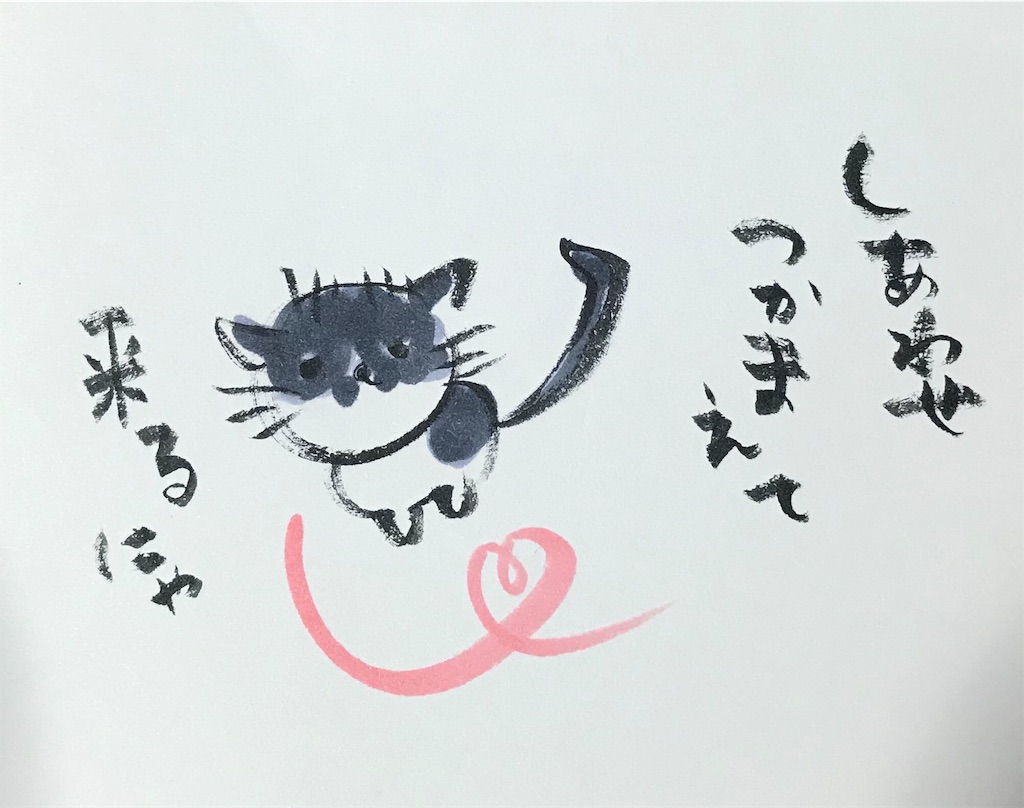 しあわせ
つかまえて
来るにゃ